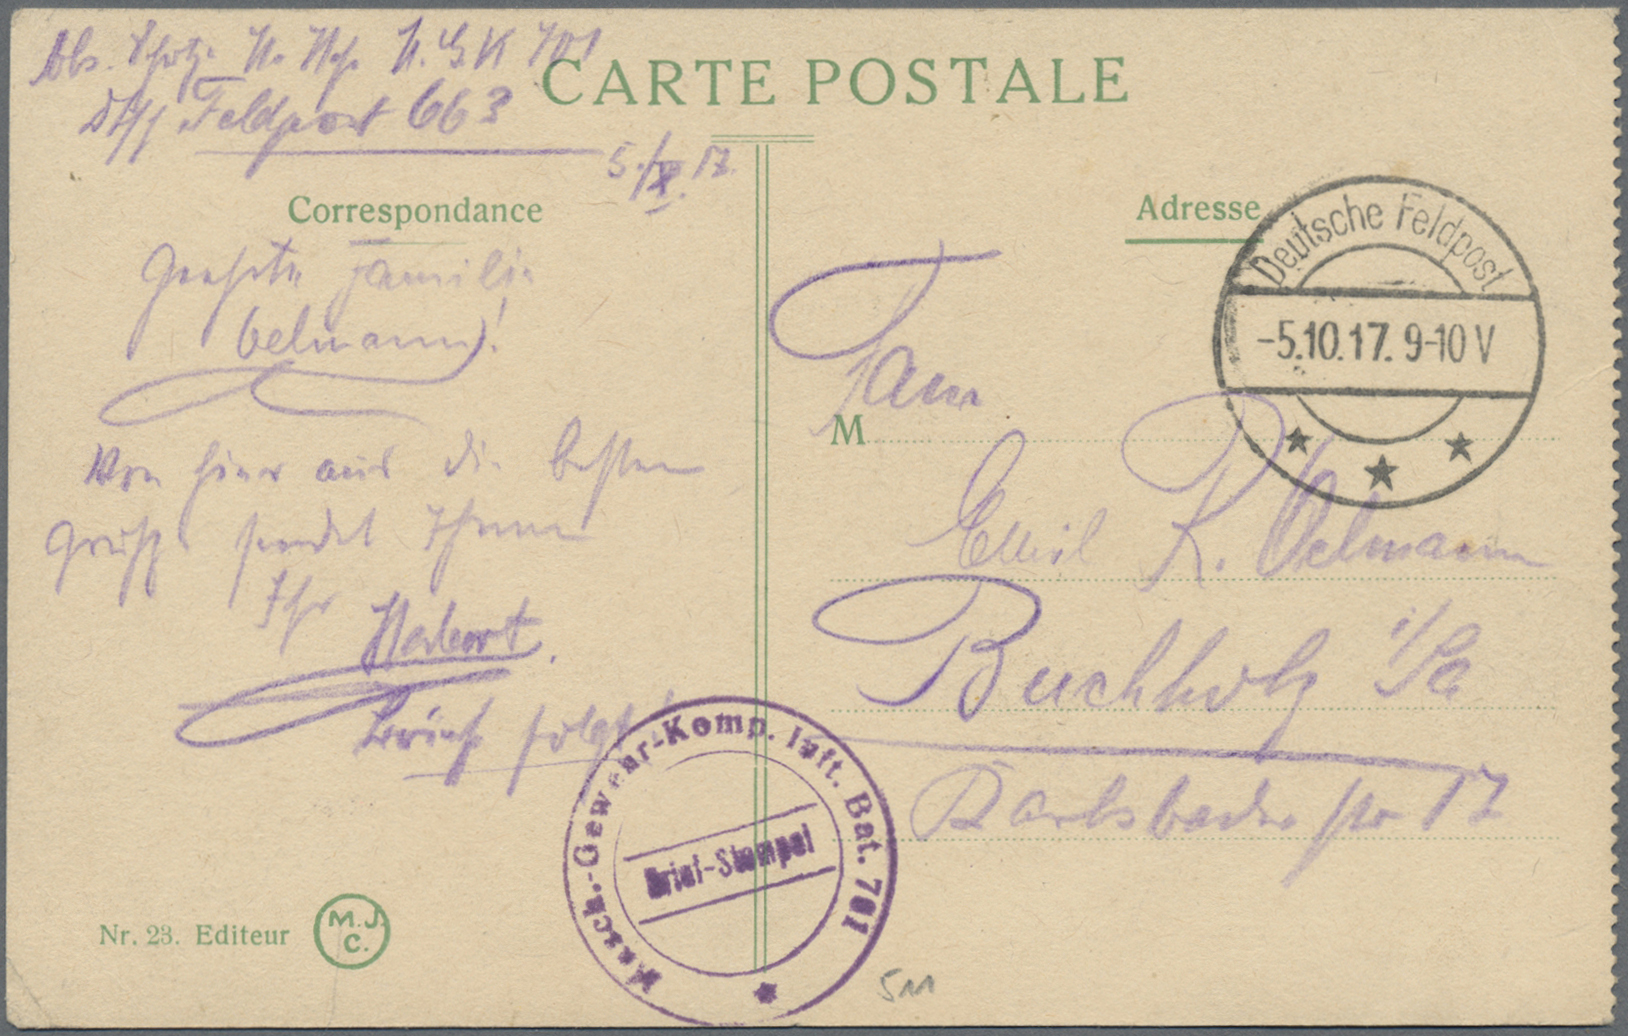 Abs. Schütze H. M.G.K 701
Dtsch Feldpost 663
5./X. 17.
CARTE POSTALE
Correspondance
Adresse
Geehrte Familie
Oelmann!
Von hier aus die besten
Grüße sendet Ihnen
Ihr
Herbert.
Brief folgt!
Nr. 23. Editeur
M.J.
C.
Fam
M
Emil R. Oelmann
Buchholz i/Sa
Karlsbader str 17
Deutsche Feldpost
-5.10.17. 9-10 V
Masch.-Gewehr-Komp. Inft. Bat. 701
Brief-Stempel
511